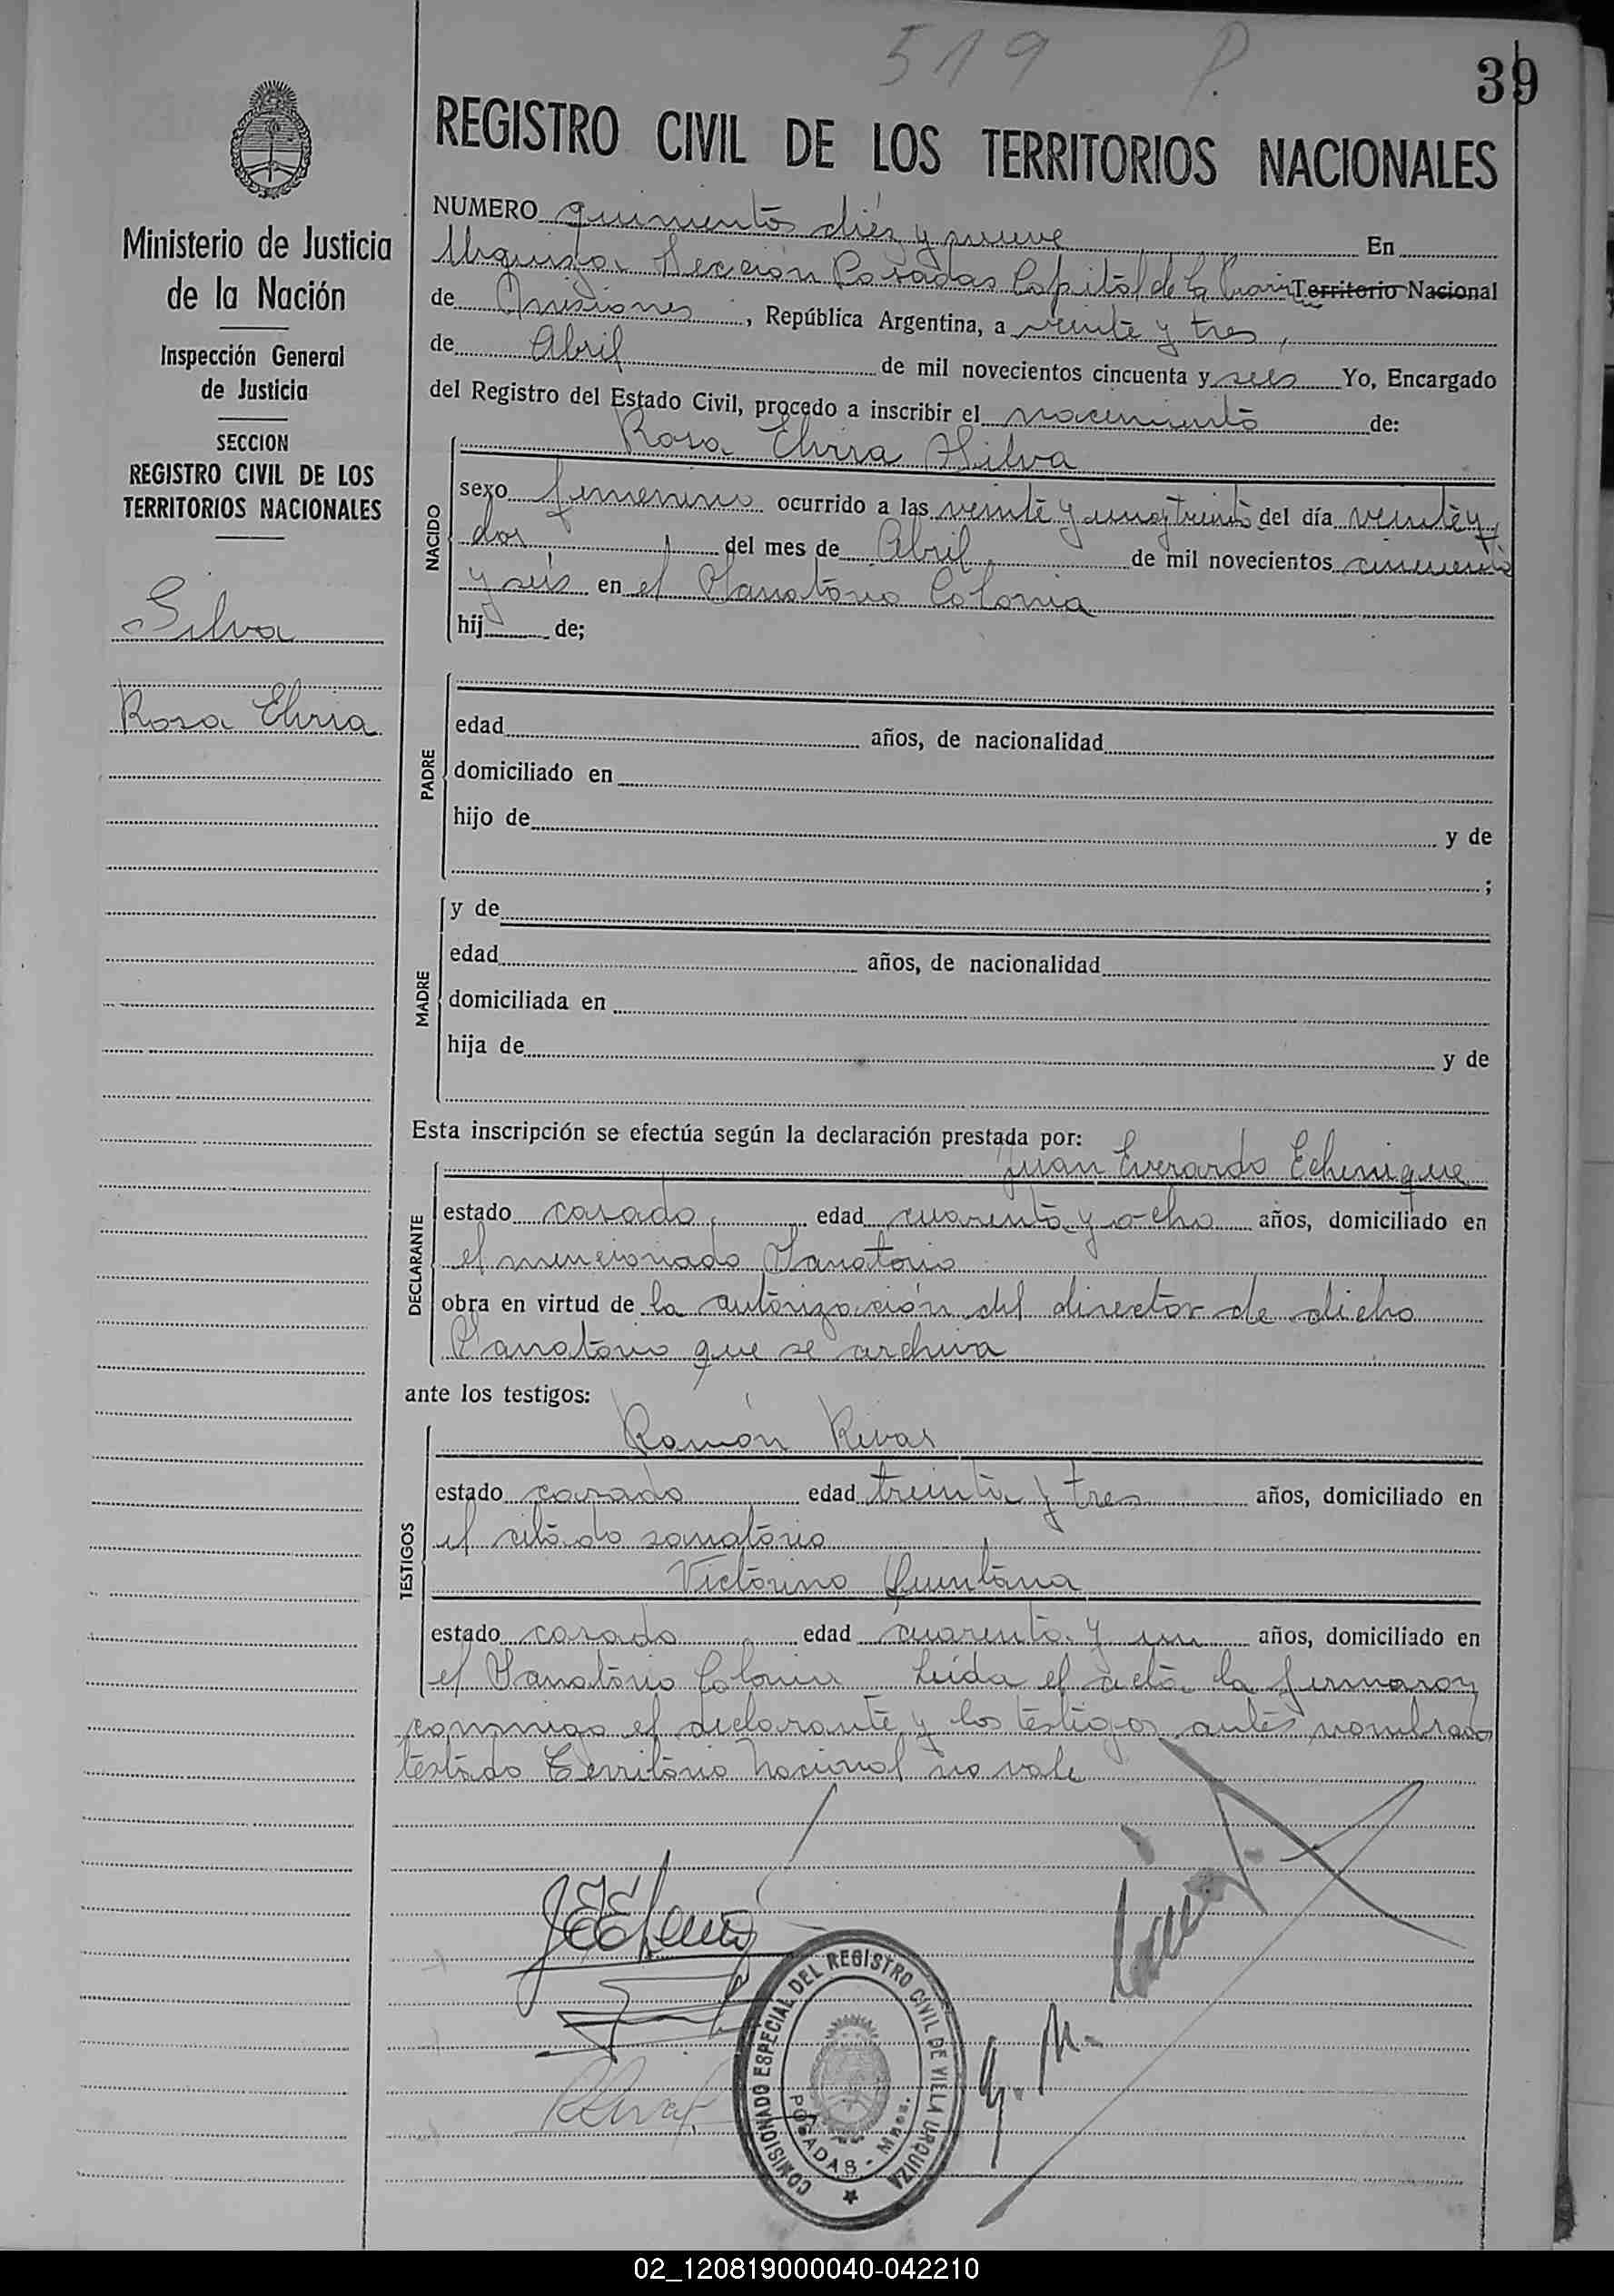 519 P.
39
REGISTRO CIVIL DE LOS TERRITORIOS NACIONALES
Ministerio de Justicia
de la Nación
Inspección General
de Justicia
SECCION
REGISTRO CIVIL DE LOS
TERRITORIOS NACIONALES
Silva
Rosa Elvira
NUMERO quinientos diéz y nueve En
Urquiza Sección Posadas Capital de la Territorio Nacional
de Misiones, República Argentina, a veinte y tres,
de Abril de mil novecientos cincuenta y seis Yo, Encargado
del Registro del Estado Civil, procedo a inscribir el nacimiento de:
NACIDO
Rosa Elvira Silva
sexo femenino ocurrido a las veinte y una treinta del día veinte y
dos, del mes de Abril de mil novecientos cincuenta
y seis en el Sanatorio Colonia
hij de;
PADRE
edad años, de nacionalidad
domiciliado en
hijo de y de
;
MADRE
y de
edad años, de nacionalidad
domiciliada en
hija de y de
Esta inscripción se efectúa según la declaración prestada por:
DECLARANTE
Juan Everardo Echenique
estado casado, edad cuarenta y ocho años, domiciliado en
el mencionado Sanatorio
obra en virtud de la autorización del director de dicho
Sanatorio que se archiva
ante los testigos:
TESTIGOS
Ramón Rivas
estado casado edad treinta y tres años, domiciliado en
el citado sanatorio
Victorino Quintana
estado casado edad cuarenta y un años, domiciliado en
el Sanatorio Colonia Leida el acta la firmaron
conmigo el declarante y los testigos antes nombrados
testado Territorio Nacional no vale
COMISIONADO ESPECIAL DEL REGISTRO CIVIL DE VILLA URQUIZA
POSADAS - Mnes.
02_120819000040-042210